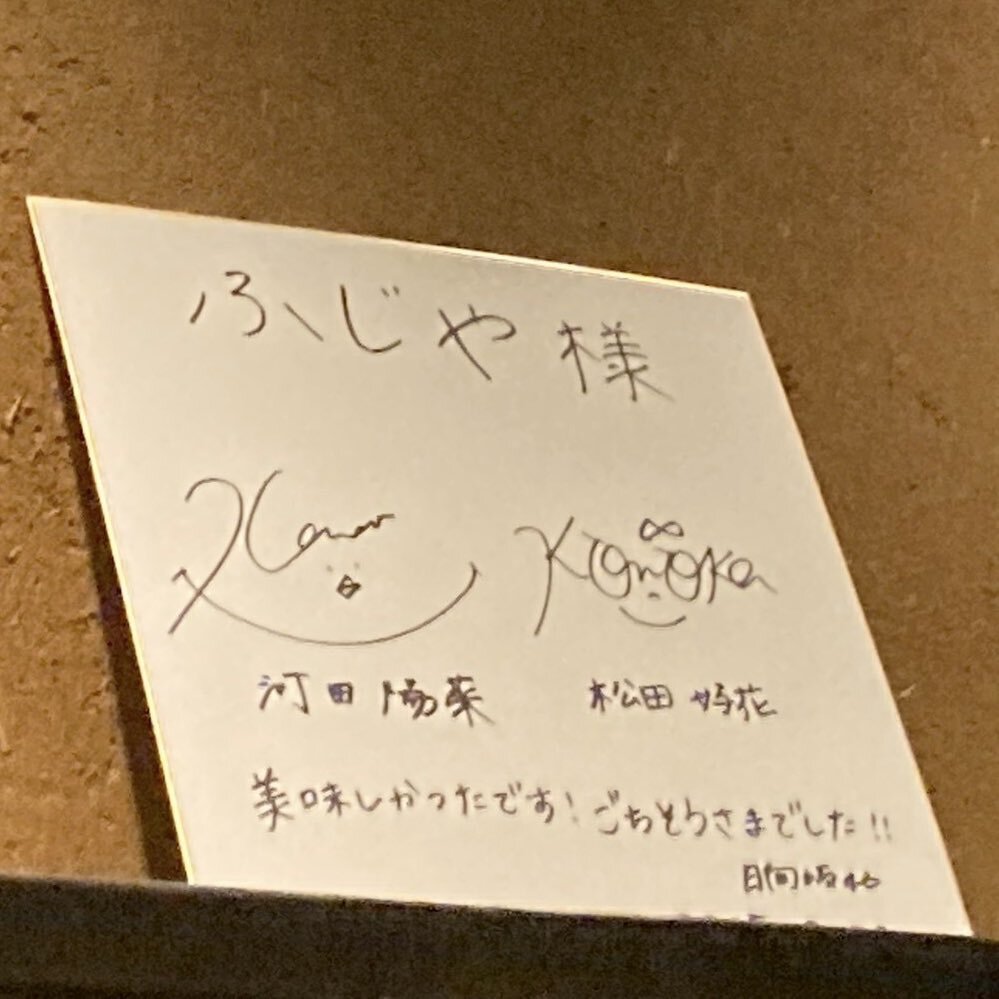 ふじや様
Kana Konoka
河田陽菜 松田好花
美味しかったです！ごちそうさまでした!!
日向坂46